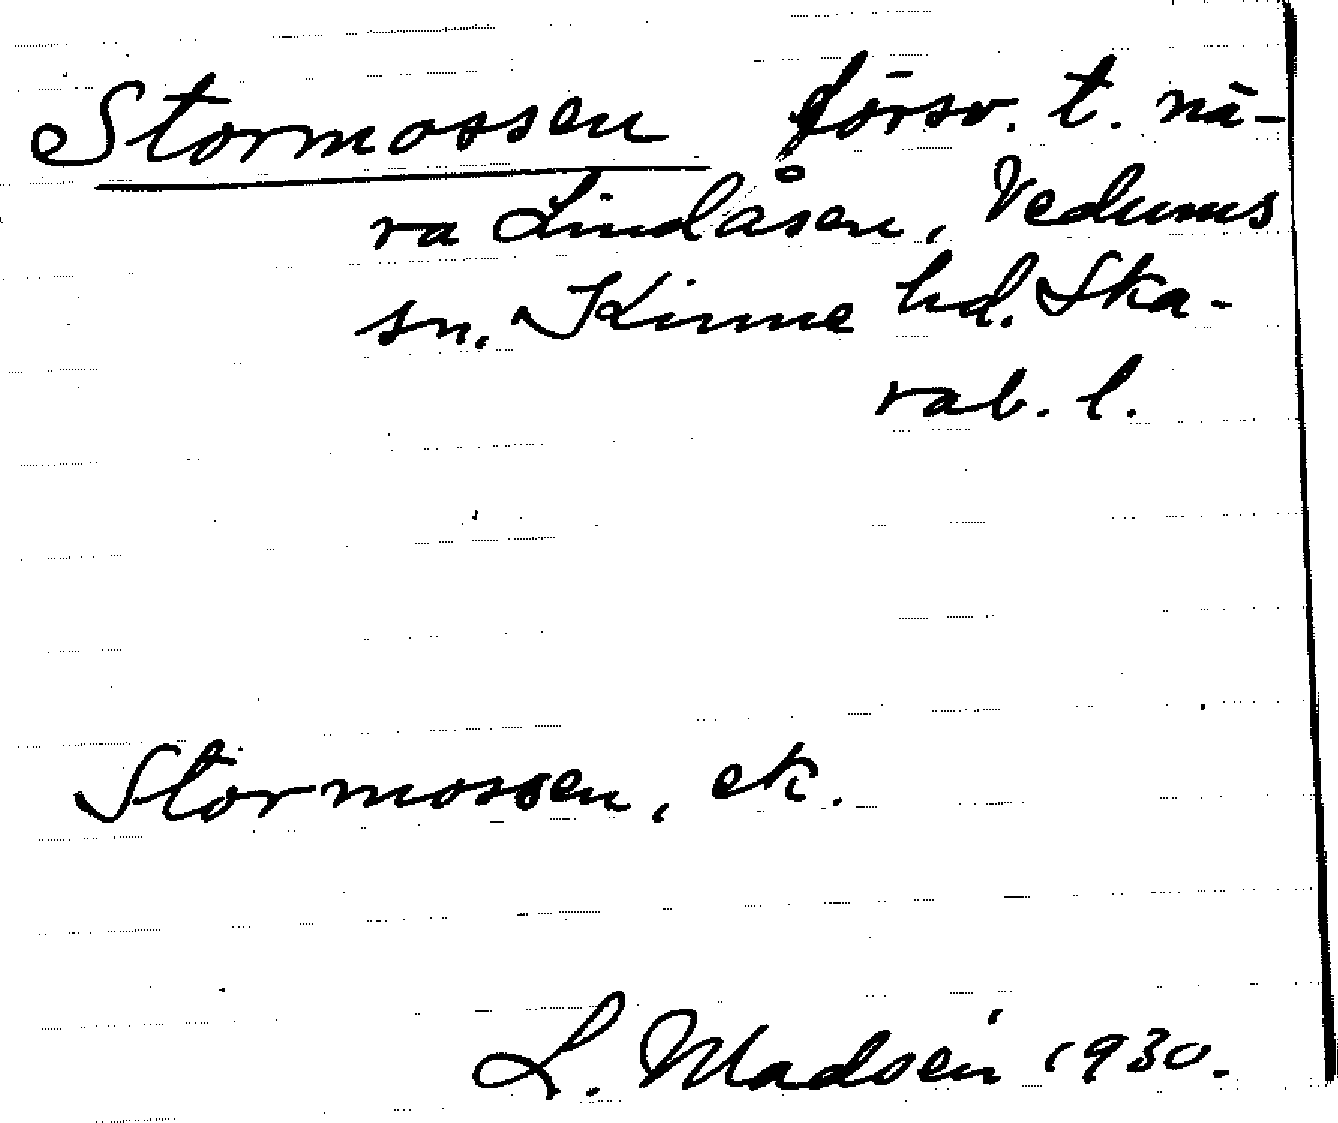 Stormossen försv. t. nä-
ra Lindåsen, Vedums
sn. Kinne hd. Ska-
rab. l.
Stormossen, ek.
L. Madsén 1930.